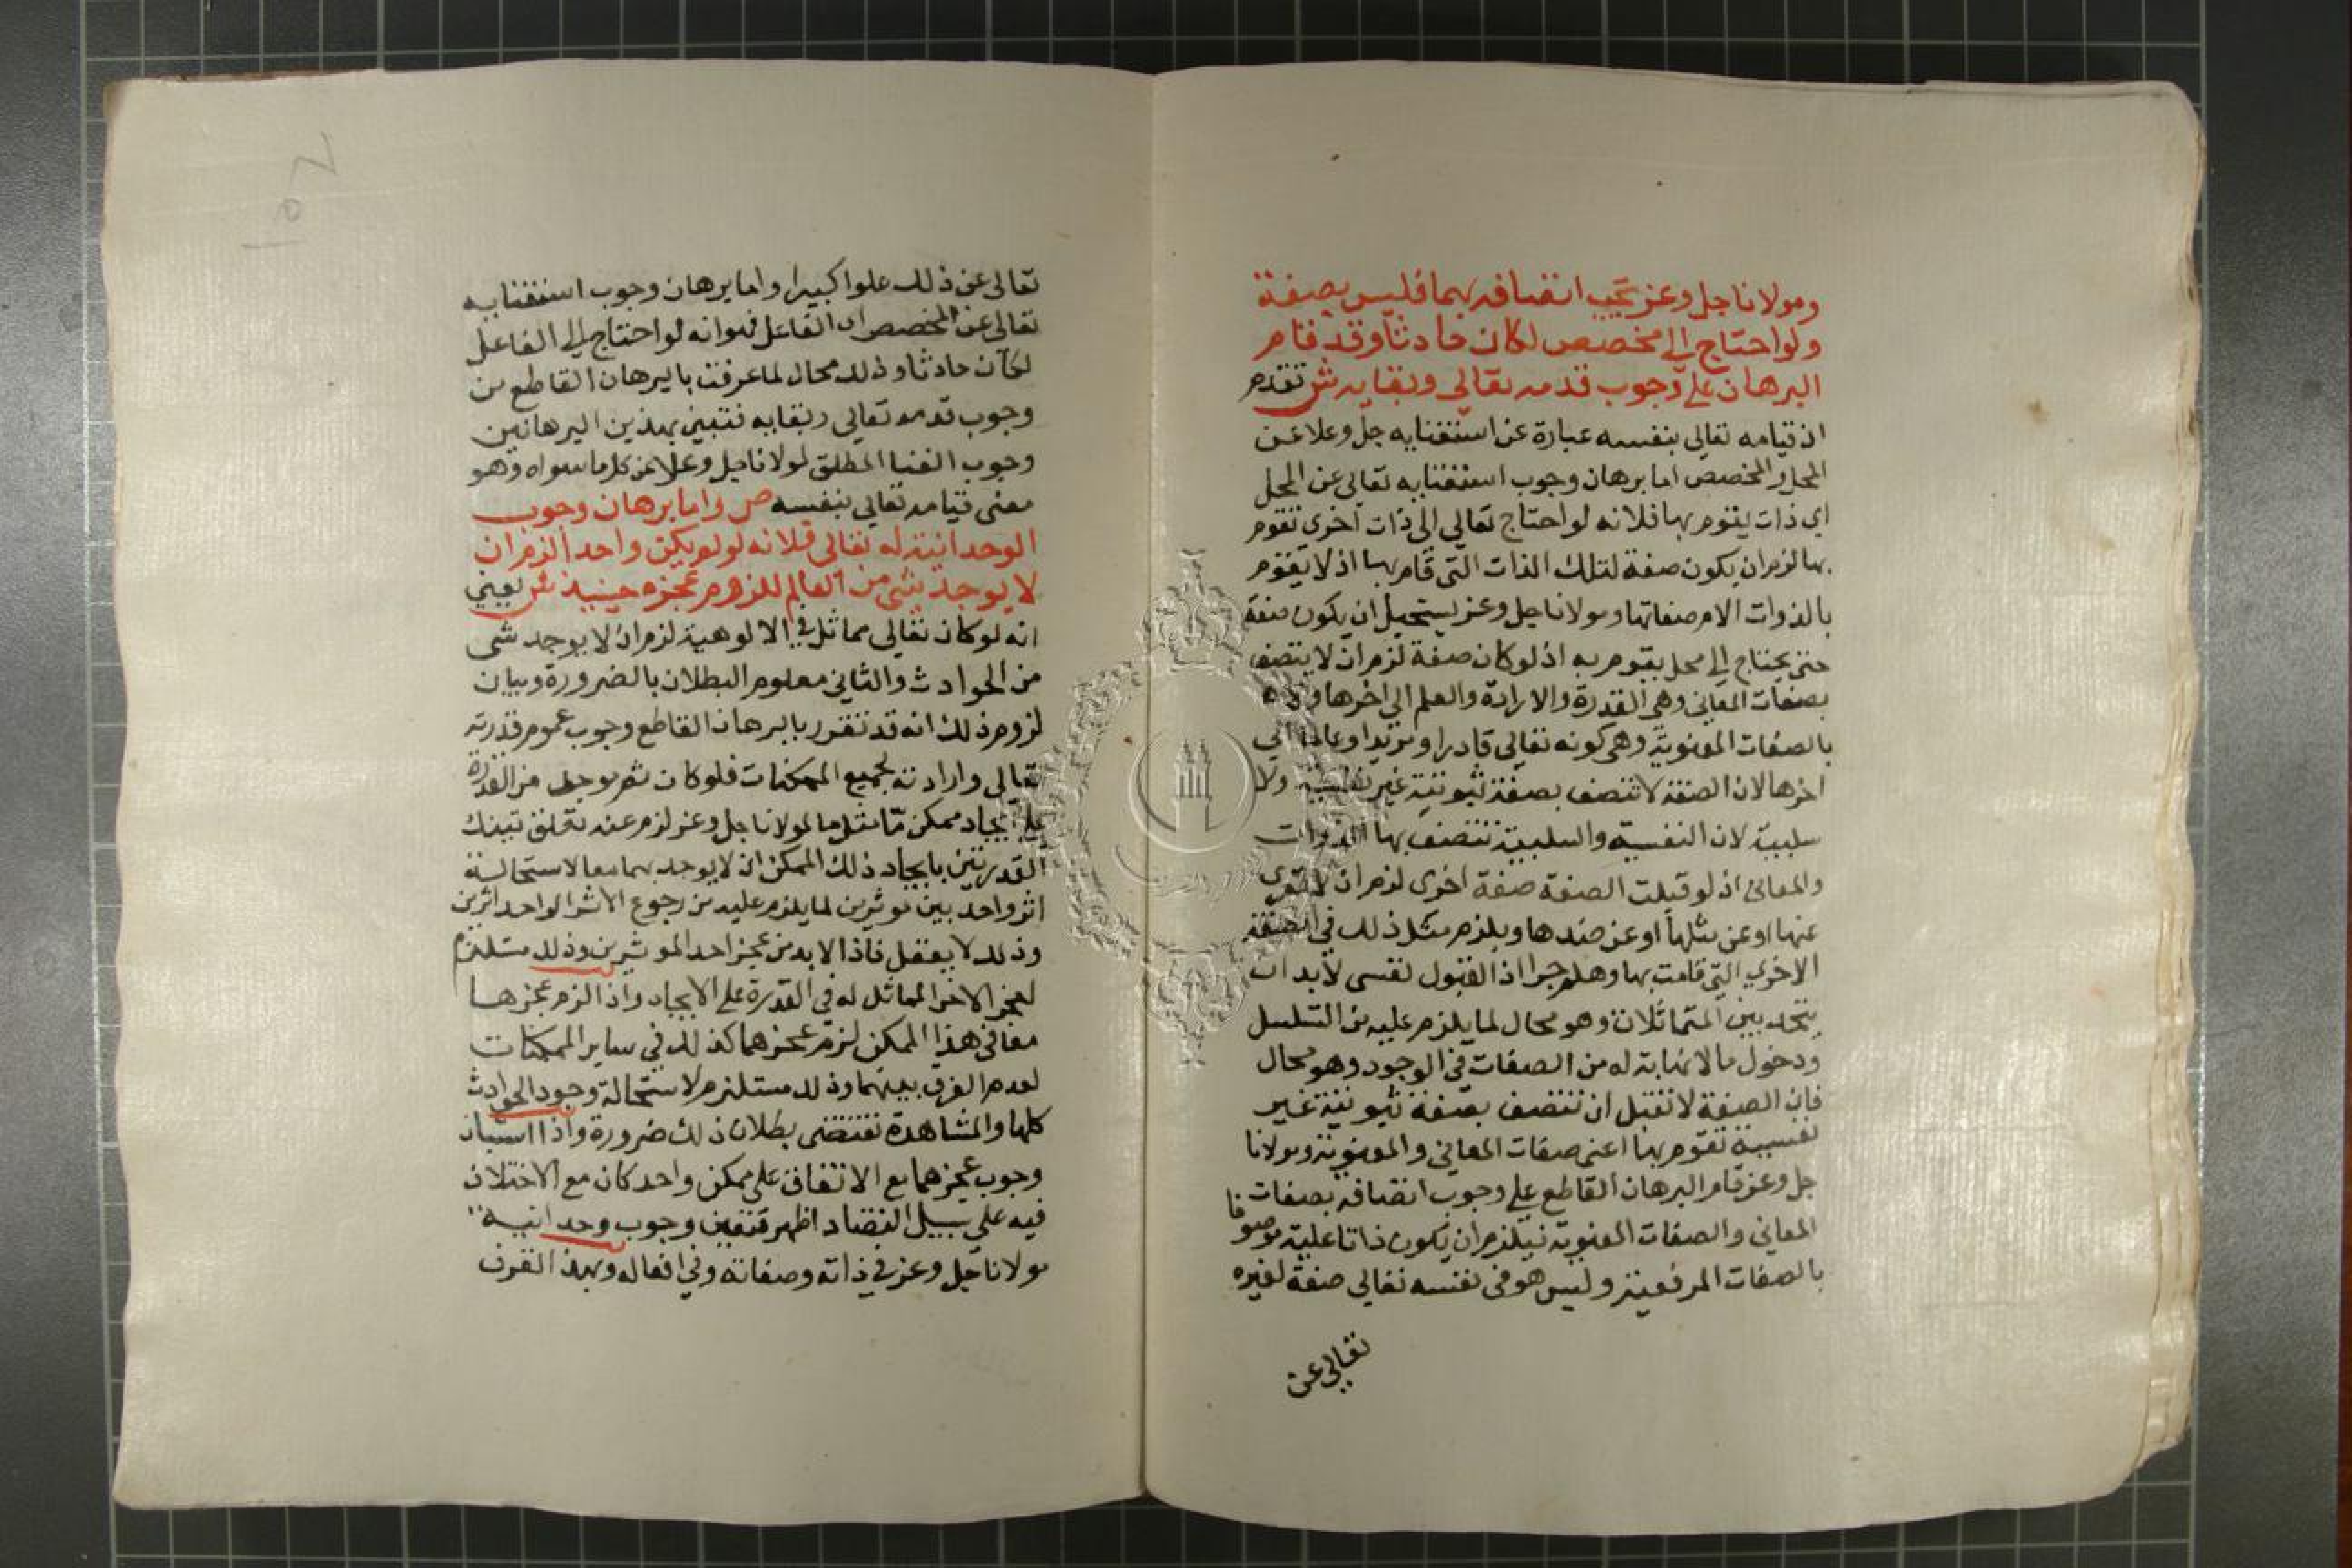 ومولانا جل وعز يجب اتصافه بهما فليس بصفة
ولو احتاج الى مخصص لكان حادثا وقد قام
البرهان على وجوب قدمه تعالى وبقايه ش تقدم
ان قيامه تعالى بنفسه عبارة عن استغنايه جل وعلا عن
المحل والمخصص اما برهان وجوب استغنايه تعالى عن المحل
اي ذات يقوم بها فلانه لو احتاج تعالى الى ذات اخرى تقوم
بها لزم ان يكون صفة لتلك الذات التى قام بها اذ لا يقوم
بالذوات الا صفاتها ومولانا جل وعز يستحيل ان يكون صفة
حتى يحتاج الى محل يقوم به اذ لو كان صفة لزم ان لا يتصف
بصفات المعانى وهى القدرة والارادة والعلم الى اخرها ولا
بالصفات المعنوية وهى كونه تعالى قادرا ومريدا وعالما الى
اخرها لان الصفة لا تتصف بصفة ثبوتية غير نفسية ولا
سلبية لان النفسية والسلبية تتصف بها الذوات
والمعانى اذ لو قبلت الصفة صفة اخرى لزم ان لا تعرى
عنها او عن مثلها او عن ضدها ويلزم مثل ذلك في الصفة
الاخرى التى قامت بها وهلم جرا اذ القبول نفسى لابد ان
يتحد بين المتماثلان وهو محال لما يلزم عليه من التسلسل
ودخول ما لا نهاية له من الصفات في الوجود وهو محال
فان الصفة لا تقبل ان تتصف بصفة ثبوتية غير
نفسية تقوم بها اعنى صفات المعاني والمعنوية ومولانا
جل وعز قام البرهان القاطع على وجوب اتصافه بصفات
المعاني والصفات المعنوية فيلزم ان يكون ذاتا علية موصوفا
بالصفات المرفعية وليس هو فى نفسه تعالى صفة لغيره
تعالى عن
تعالى عن ذلك علوا كبيرا واما برهان وجوب استغنايه
تعالى عن المخصص اى الفاعل فهو انه لو احتاج الى الفاعل
لكان حادثا وذلك محال لما عرفت بالبرهان القاطع من
وجوب قدمه تعالى وبقايه فتبين بهذين البرهانين
وجوب الغنا المطلق لمولانا جل وعلا عن كل ما سواه وهو
معنى قيامه تعالى بنفسه ص واما برهان وجوب
الوحدانية له تعالى فلانه لو لم يكن واحد الزم ان
لا يوجد شى من العالم للزوم عجزه حينيذ ش يعني
انه لو كان تعالى مماثل في الالوهية لزم ان لا يوجد شى
من الحوادث والثاني معلوم البطلان بالضرورة وبيان
لزوم ذلك انه قد تقرر بالبرهان القاطع وجوب عموم قدرته
تعالى وارادته لجميع الممكنات فلو كان ثم موجود من القدرة
على ايجاد ممكن ما مثل ما لمولانا جل وعز لزم عند تعلق تينك
القدرتين بايجاد ذلك الممكن ان لا يوجد بهما معا لاستحالة
اثر واحد بين موثرين لما يلزم عليه من رجوع الاثر الواحد اثرين
وذلك لا يعقل فاذا لابد من عجز احد الموثرين وذلك مستلزم
لعجز الاخر المماثل له في القدرة على الايجاد واذا لزم عجزها
معا في هذا الممكن لزم عجزهما كذلك في ساير الممكنات
لعدم الفرق بينهما وذلك مستلزم لاستحالة وجود الحوادث
كلها والمشاهدة تقتضى بطلان ذلك ضرورة واذا استبان
وجوب عجزهما مع الاتفاق على ممكن واحد كان مع الاختلاف
فيه على سبيل التضاد اظهر فتعين وجوب وحدانية
مولانا جل وعز في ذاته وصفاته وفي افعاله وبهذا تعرف